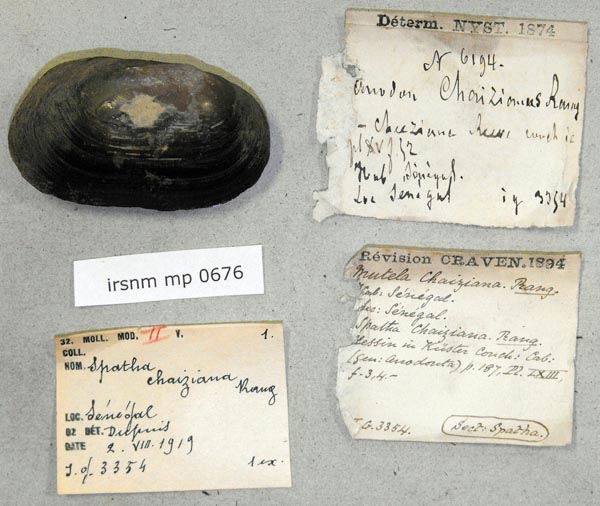 Déterm. NYST. 1874
N 6194.
Anodon Chaizianus Rang
- Chaiziana Reeve conch ic
pl XV f 52
Hab Sénégal.
Loc Sénégal ig 3354
irsnm mp 0676
Révision CRAVEN.1894
Mutela Chaiziana. Rang.
Hab: Sénégal.
Loc: Sénégal.
Spatha Chaiziana. Rang.
Clessin in Küster Conch: Cab:
(gen: Anodonta) p. 187, Pl. LXIII,
f. 3,4.-
G. 3354. (Sect: Spatha.)
32. MOLL. MOD. II V. 1.
COLL.
NOM. Spatha
chaiziana
Rang
LOC. Sénégal
02 DÉT. Dupuis
DATE 2. VIII. 1919
I. g. 3354 1 ex.